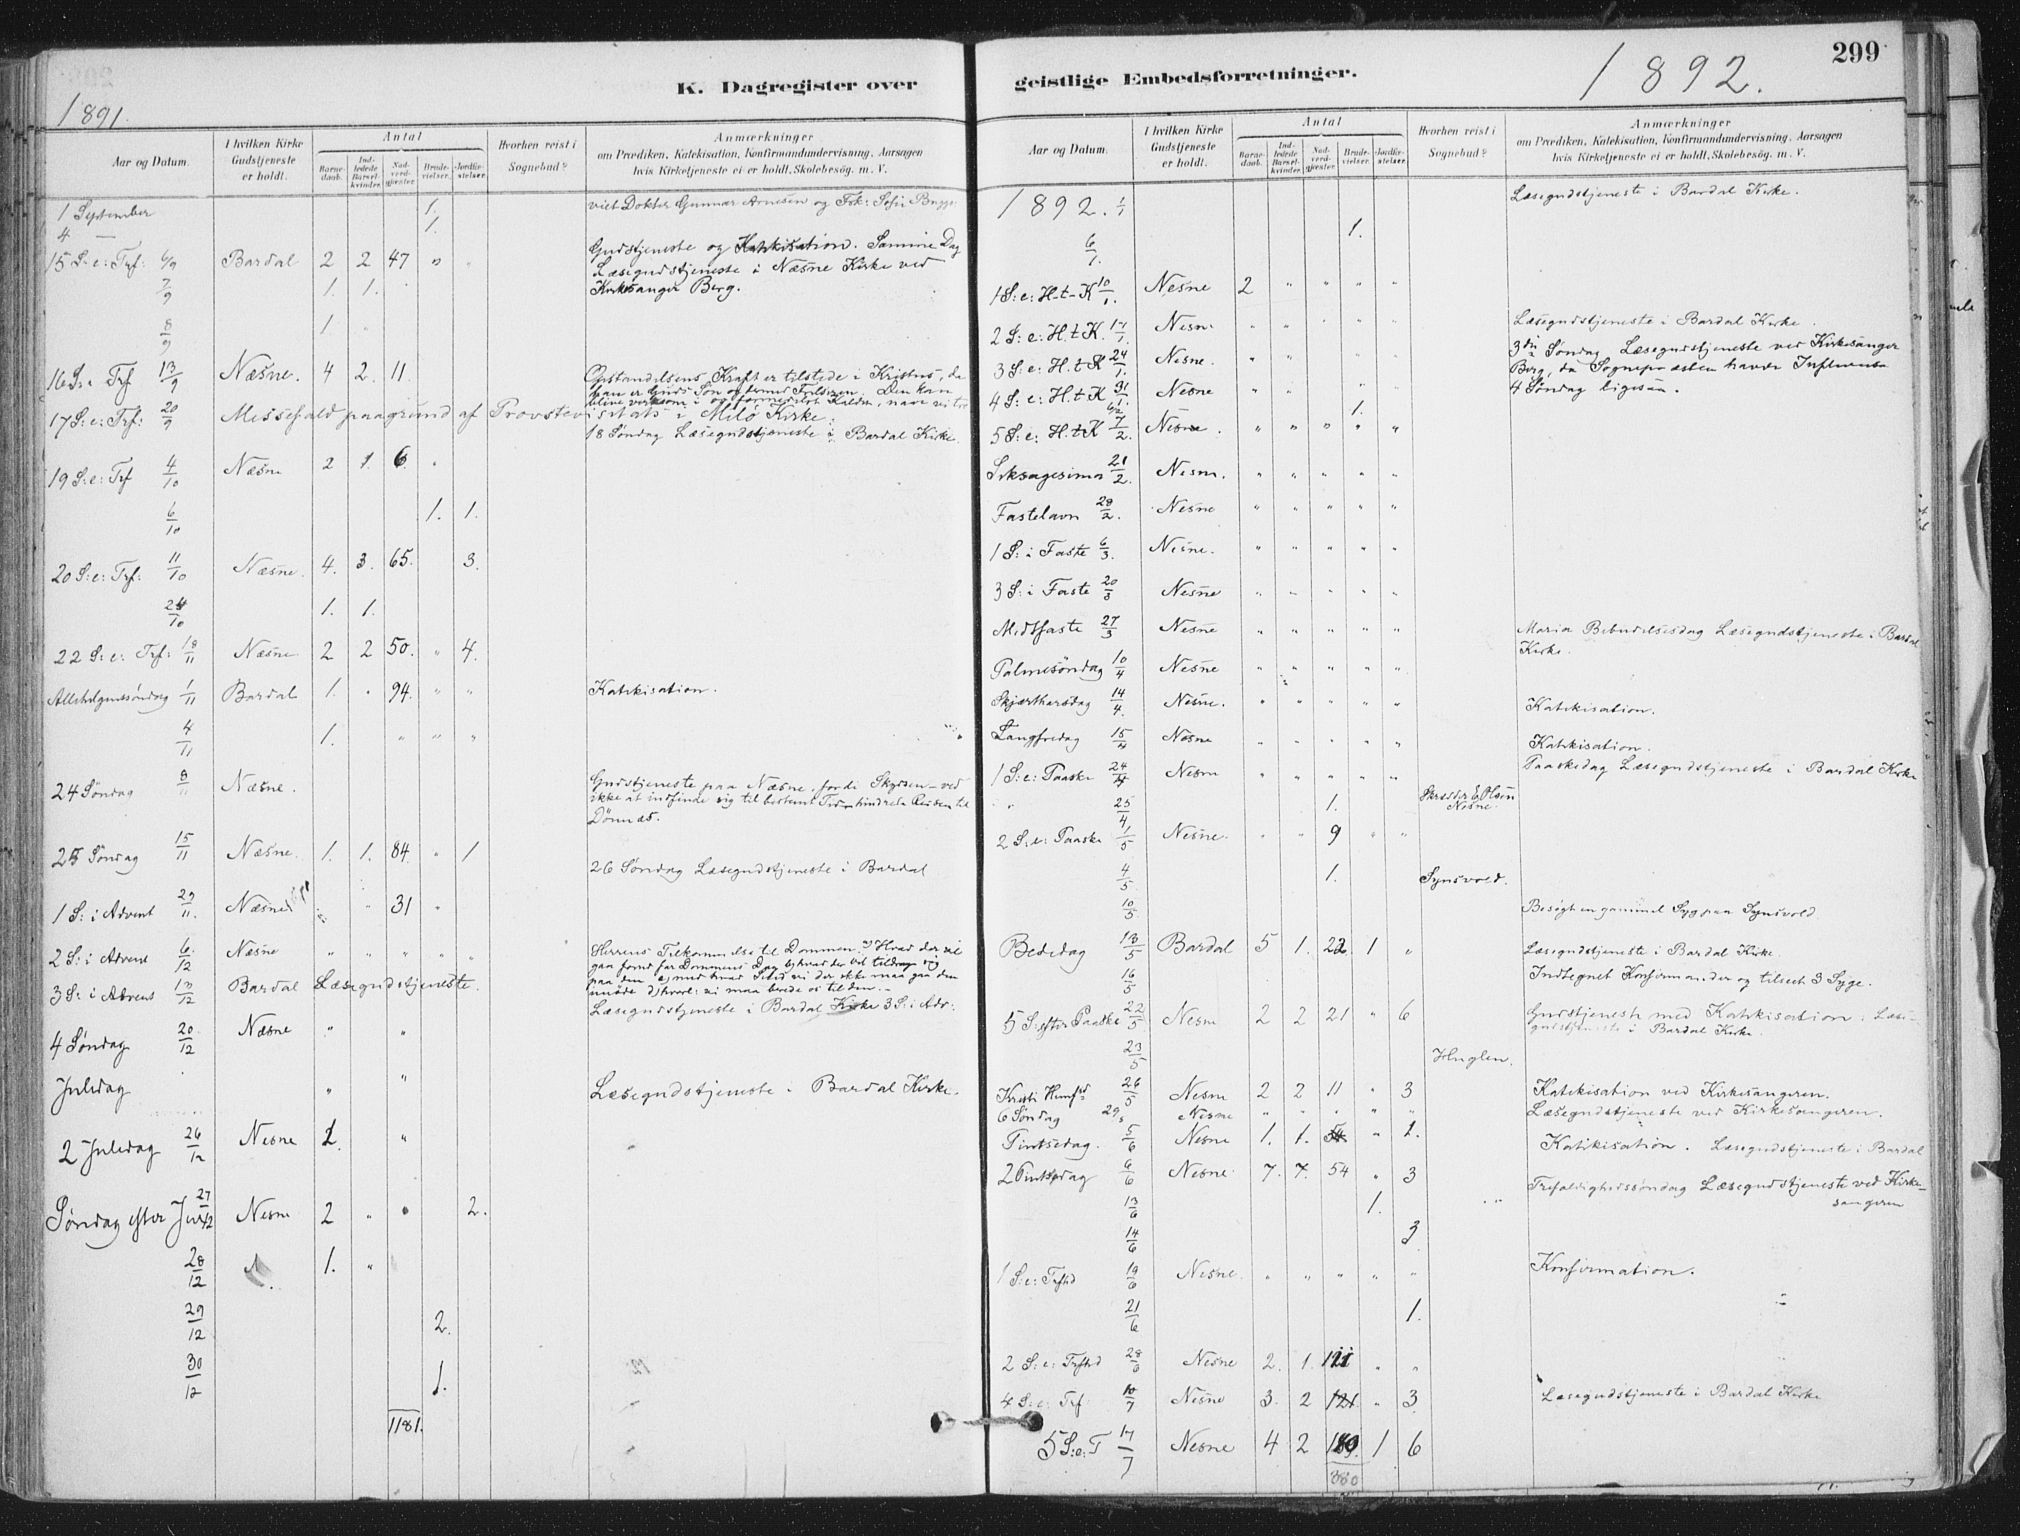 K. Dagregister over geistlige Embedsforretninger.
299
1891.
1892.
Aar og Datum.
I hvilken Kirke Gudstjeneste er holdt.
Antal
Barnedaab.
Indledede Barselkvinder.
Nadverdgjester
Brudevielser.
Jordfæstelser.
Hvorhen reist i Sognebud?
Anmærkninger
om Prædiken, Katekisation, Konfirmandundervisning, Aarsagen
hvis Kirketjeneste ei er holdt, Skolebesøg. m. V.
1 September 1. viet Dokter Gunnar Arnesen og Frk: Sofie Bugge
4 — 1.
15 S: e: Trf: 6/9 Bardal 2 2 47 " " Gudstjeneste og Katekisation. Samme Dag
Læsegudstjeneste i Næsne Kirke ved
7/9 1. 1. Kirkesanger Berg.
8/9 1. "
16 S: e Trf 13/9 Næsne. 4 2. 11. Opstandelsens Kraft er tilstede i Kristus, da
han er Guds Søn og
17 S: e: Trf: 20/9 Messefald paagrund af Provstevisitats i Kirke
18 Søndag Læsegudstjeneste i Bardal Kirke
19 S: e: Trf 4/10 Næsne 2 1. 6. "
6/10 1. 1.
20 S: e: Trf: 11/10 Næsne. 4. 3. 65. 3.
24/10 1. 1.
22 S: e: Trf: 18/11 Næsne 2 2 50. " 4.
Allehelgenssøndag 1/11 Bardal 1. " 94. " " Katekisation.
4/11 1. " " "
24 Søndag 8/11 Næsne. Gudstjeneste paa Næsne, fordi Skydsen ved
ikke at indfinde sig til bestemt Tid hindrede Reisen til
Dönnæs.
25 Søndag 15/11 Næsne. 1. 1. 84. " 1
26 Søndag Læsegudstjeneste i Bardal
1 S: i Advent 29/11. Næsne " 31 "
2 S: i Advent 6/12 Næsne " " " " " Herrens Tilkommelse til Dommen. Hvad der vil
gaa forud for Dommens Dag
3 S: i Advent 13/12 Bardal Læsegudstjeneste.
Læsegudstjeneste i Bardal Kirke 3 S: i Adv:
4 Søndag 20/12 Næsne " "
Juledag " " Læsegudstjeneste i Bardal Kirke.
2 Juledag 26/12 Nesne 2. "
Søndag efter Jul 27/12 Nesne 2 " " 2.
28/12 1. "
29/12 2.
30/12 1.
1181.
Aar og Datum.
I hvilken Kirke Gudstjeneste er holdt.
Antal
Barnedaab.
Indledede Barselkvinder.
Nadverdgjester
Brudevielser.
Jordfæstelser.
Hvorhen reist i Sognebud?
Anmærkninger
om Prædiken, Katekisation, Konfirmandundervisning, Aarsagen
hvis Kirketjeneste ei er holdt, Skolebesøg. m. V.
1892. 1/1 Læsegudstjeneste i Bardal Kirke.
6/1. 1.
1 S: e: H-t-K 10/1. Nesne 2 " " " "
2 S: e: H. t K. 17/1. Nesn. " " " " " Læsegudstjeneste i Bardal Kirke.
3 S: e: H. t K 24/1. Nesne. " " " " 3die Søndag Læsegudstjeneste ved Kirkesanger
Berg, da Sognepræsten havde Influensa
4 S: e: H. t K 31/1. Nesne " " " " " 4 Søndag ligesaa.
6/2 1.
5 S: e: H. t K 7/2. Nesne. " " " " "
Seksagesima 21/2. Nesne. " " " " "
Fastelavn 28/2. Nesne " " " " "
1 S: i Faste 6/3. Nesne. " " " " "
3 S: i Faste 20/3 Nesne " " " " "
Midtfaste 27/3 Nesne " " " " " Maria Bebudelsesdag Læsegudstjeneste i Bardal
Kirke.
Palmesöndag 10/4 Nesne " " " " "
Skjærthorsdag 14/4. Nesne. " " " " " Katekisation.
Langfredag 15/4 Næsne " " " " " Katekisation.
1 S: e: Paaske 24/4 Nesne " " " " " Paaskedag Læsegudstjeneste i Bardal Kirke
" 25/4 1. Skredder E Olsen Nesne.
2 S: e: Paaske 1/5 Nesne. " " 9 " "
4/5. 1. Synsvold.
10/5. Besøgt en gammel Syg paa Synsvold
Bededag 13/5 Bardal 5 1. 22. 1 " Læsegudstjeneste i Bardal Kirke.
16/5 Indtegnet Konfirmander og tilseet 3 Syge.
5 S: efter Paaske 22/5 Nesne 2 2 21 " 6 Gudstjeneste med Katekisation. Læse-
gudstjeneste i Bardal Kirke.
23/5 Huglen.
Kristi Himf 26/5 Nesne 2 2 11 " 3 Katekisation ved Kirkesangeren.
6 Søndag 29/5 Nesne " " " " " Læsegudstjeneste ved Kirkesangeren.
Pintsedag. 5/6 Nesne 1. 1. " 1. Katekisation. Læsegudstjeneste i Bardal
2 Pintsedag 6/6 Nesne 7. 7. 54 " 3
Trefoldighedssøndag Læsegudstjeneste ved Kirke-
sangeren
13/6 1. "
14/6 3
1 S: e: Trftd 19/6 Nesne. " " " " " Konfirmation.
21/6 1.
2 S: e: Trftd 28/6 Nesne 2. 1. " "
4 S: e: Trf 10/7 Nesne 3. 2 121. " 3. Læsegudstjeneste i Bardal Kirke
5 S: e: T 17/7 Nesne 4 2 1 6
380